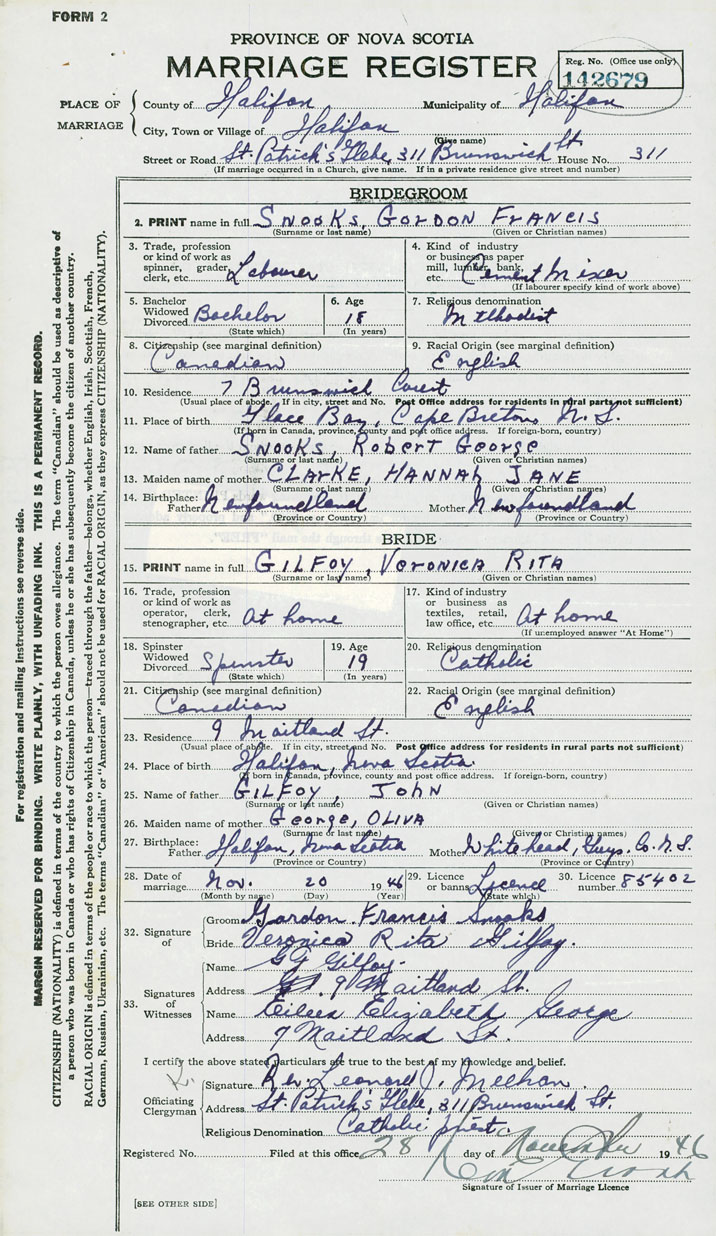 FORM 2
PROVINCE OF NOVA SCOTIA
MARRIAGE REGISTER
Reg. No. (Office use only)
142679
PLACE OF MARRIAGE
County of Halifax Municipality of Halifax
City, Town or Village of Halifax
(Give name)
Street or Road St. Patrick's Glebe, 311 Brunswick St. House No. 311
(If marriage occurred in a Church, give name. If in a private residence give street and number)
BRIDEGROOM
2. PRINT name in full SNOOKS, GORDON FRANCIS
(Surname or last name) (Given or Christian names)
3. Trade, profession or kind of work as spinner, grader, clerk, etc. Labourer
4. Kind of industry or business as paper mill, lumber, bank, etc. Cement Mixer
(If labourer specify kind of work above)
5. Bachelor Widowed Divorced Bachelor
(State which)
6. Age 18
(In years)
7. Religious denomination
Methodist
8. Citizenship (see marginal definition)
Canadian
9. Racial Origin (see marginal definition)
English
10. Residence 7 Brunswick Court
(Usual place of abode. If in city, street and No. Post Office address for residents in rural parts not sufficient)
11. Place of birth Glace Bay, Cape Breton N.S.
(If born in Canada, province, county and post office address. If foreign-born, country)
12. Name of father SNOOKS, ROBERT GEORGE
(Surname or last name) (Given or Christian names)
13. Maiden name of mother CLARKE, HANNAH JANE
(Surname or last name) (Given or Christian names)
14. Birthplace: Father Newfoundland Mother Newfoundland
(Province or Country) (Province or Country)
BRIDE
15. PRINT name in full GILFOY, VERONICA RITA
(Surname or last name) (Given or Christian names)
16. Trade, profession or kind of work as operator, clerk, stenographer, etc. At home
17. Kind of industry or business as textiles, retail, law office, etc. At home
(If unemployed answer "At Home")
18. Spinster Widowed Divorced Spinster
(State which)
19. Age 19
(In years)
20. Religious denomination
Catholic
21. Citizenship (see marginal definition)
Canadian
22. Racial Origin (see marginal definition)
English
23. Residence 9 Maitland St.
(Usual place of abode. If in city, street and No. Post Office address for residents in rural parts not sufficient)
24. Place of birth Halifax, Nova Scotia
(If born in Canada, province, county and post office address. If foreign-born, country)
25. Name of father GILFOY, JOHN
(Surname or last name) (Given or Christian names)
26. Maiden name of mother George, OLIVA
(Surname or last name) (Given or Christian names)
27. Birthplace: Father Halifax, Nova Scotia Mother Whitehead, Guys. Co. N.S.
(Province or Country) (Province or Country)
28. Date of marriage Nov. 20 1946
(Month by name) (Day) (Year)
29. Licence or banns Licence
(State which)
30. Licence number 85402
32. Signature of
Groom Gordon Francis Snooks
Bride Veronica Rita Gilfoy.
33. Signatures of Witnesses
Name Gilfoy.
Address 9 Maitland St.
Name Eileen Elizabeth George
Address 7 Maitland St.
I certify the above stated particulars are true to the best of my knowledge and belief.
Officiating Clergyman
Signature Rev. Leonard J. Meehan.
Address St. Patrick's Glebe, 311 Brunswick St.
Religious Denomination Catholic priest.
Registered No. Filed at this office 28 day of November 1946
Signature of Issuer of Marriage Licence
[SEE OTHER SIDE]
For registration and mailing instructions see reverse side.
MARGIN RESERVED FOR BINDING. WRITE PLAINLY, WITH UNFADING INK. THIS IS A PERMANENT RECORD.
CITIZENSHIP (NATIONALITY) is defined in terms of the country to which the person owes allegiance. The term "Canadian" should be used as descriptive of
a person who was born in Canada or who has rights of Citizenship in Canada, unless he or she has subsequently become the citizen of another country.
RACIAL ORIGIN is defined in terms of the people or race to which the person—traced through the father—belongs, whether English, Irish, Scottish, French,
German, Russian, Ukrainian, etc. The terms "Canadian" or "American" should not be used for RACIAL ORIGIN, as they express CITIZENSHIP (NATIONALITY).